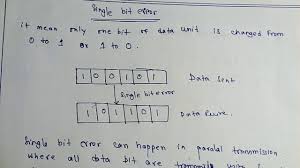 Single bit error
it mean only one bit of data unit is changed from
0 to 1 or 1 to 0.
1 0 0 1 0 1 Data Sent
Single bit error
1 0 1 1 0 1 Data
Single bit error can happen in paralal transmission
where all data bit are